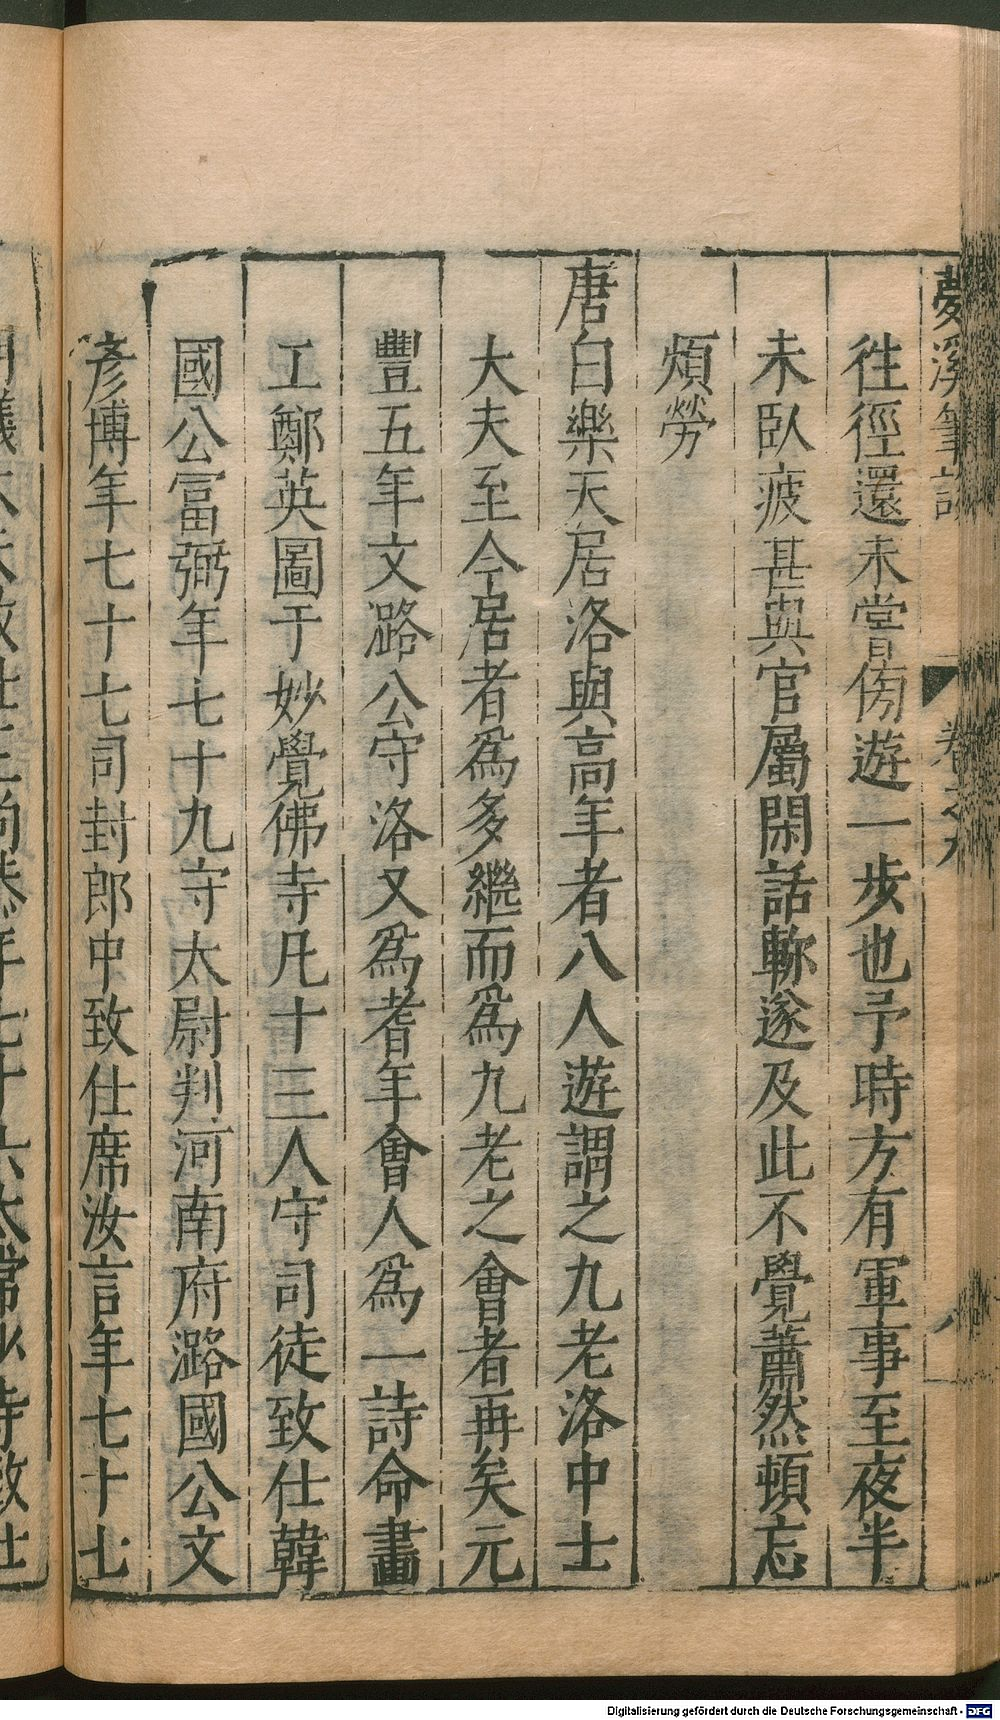 夢溪筆談 卷之九 八
徃徑還未嘗傍遊一步也予時方有軍事至夜半
未臥疲甚與官屬閑話輙遂及此不覺蕭然頓忘
煩勞
唐白樂天居洛與高年者八人遊謂之九老洛中士
大夫至今居者爲多繼而爲九老之會者再矣元
豐五年文潞公守洛又爲耆年會人爲一詩命畫
工鄭英圖于妙覺佛寺凡十三人守司徒致仕韓
國公富弼年七十九守太尉判河南府潞國公文
彥博年七十七司封郎中致仕席汝言年七十七
Digitalisierung gefördert durch die Deutsche Forschungsgemeinschaft - DFG